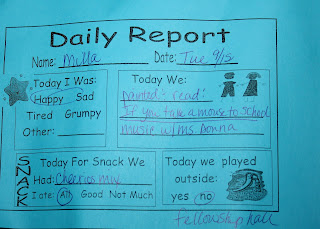 Daily Report
Name: Milla Date: Tue 9/15
Today I Was:
Happy Sad
Tired Grumpy
Other:
Today We:
painted - read:
If you take a mouse to school
music w/ ms Donna
SNACK
Today For Snack We
Had: Cheerios mix
I ate: All Good Not Much
Today we played
outside:
yes no
fellowship hall